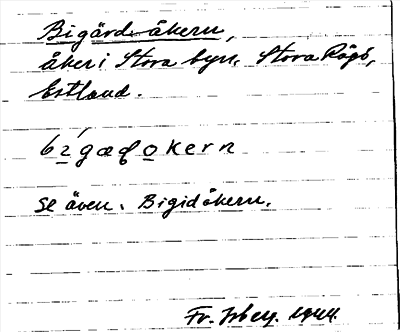 Bigärd-åkern,
åker i Stora byn, Stora Rågö,
Estland.
bi'gæɖokern
se även. Bigidåkern.
Fr. Isbey. 1944.